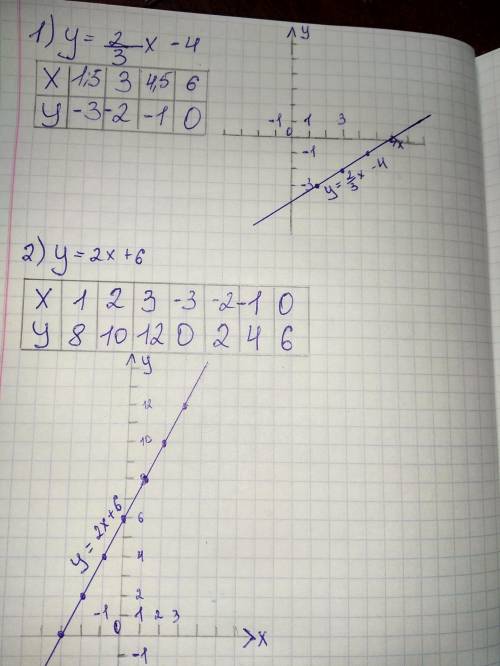 1) y = 2/3 x - 4
X 1,5 3 4,5 6
y -3 -2 -1 0
y
-1 0 1 3
x
-1
-3
y = 2/3 x - 4
2) y = 2x + 6
X 1 2 3 -3 -2 -1 0
y 8 10 12 0 2 4 6
y
12
10
8
6
y = 2x + 6
4
2
-1 0 1 2 3
x
-1